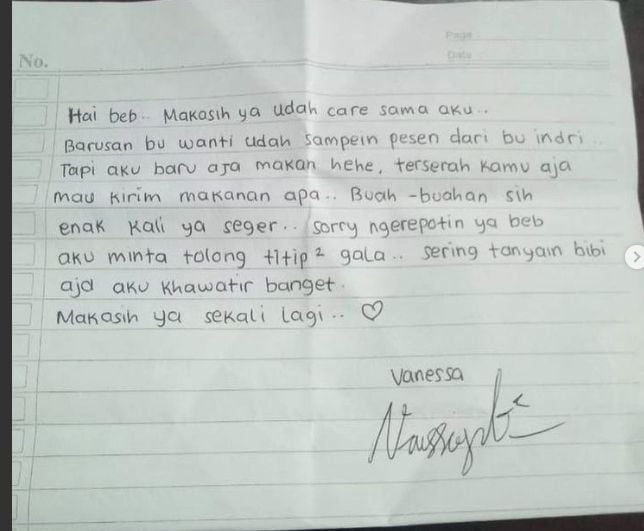 Page
Date
No.
Hai beb.. Makasih ya udah care sama aku..
Barusan bu wanti udah sampein pesen dari bu indri..
Tapi aku baru aja makan hehe, terserah kamu aja
mau kirim makanan apa.. Buah-buahan sih
enak kali ya seger.. sorry ngerepotin ya beb
aku minta tolong titip² gala.. sering tanyain bibi
aja aku khawatir banget.
Makasih ya sekali lagi.. ♡
Vanessa